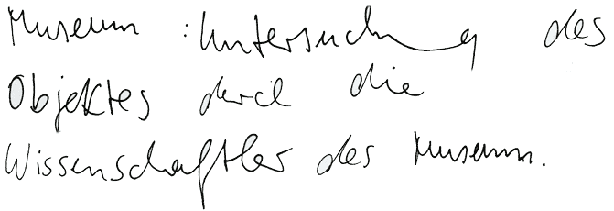 Museum : Untersuchung des
Objektes durch die
Wissenschaftler des Museum.